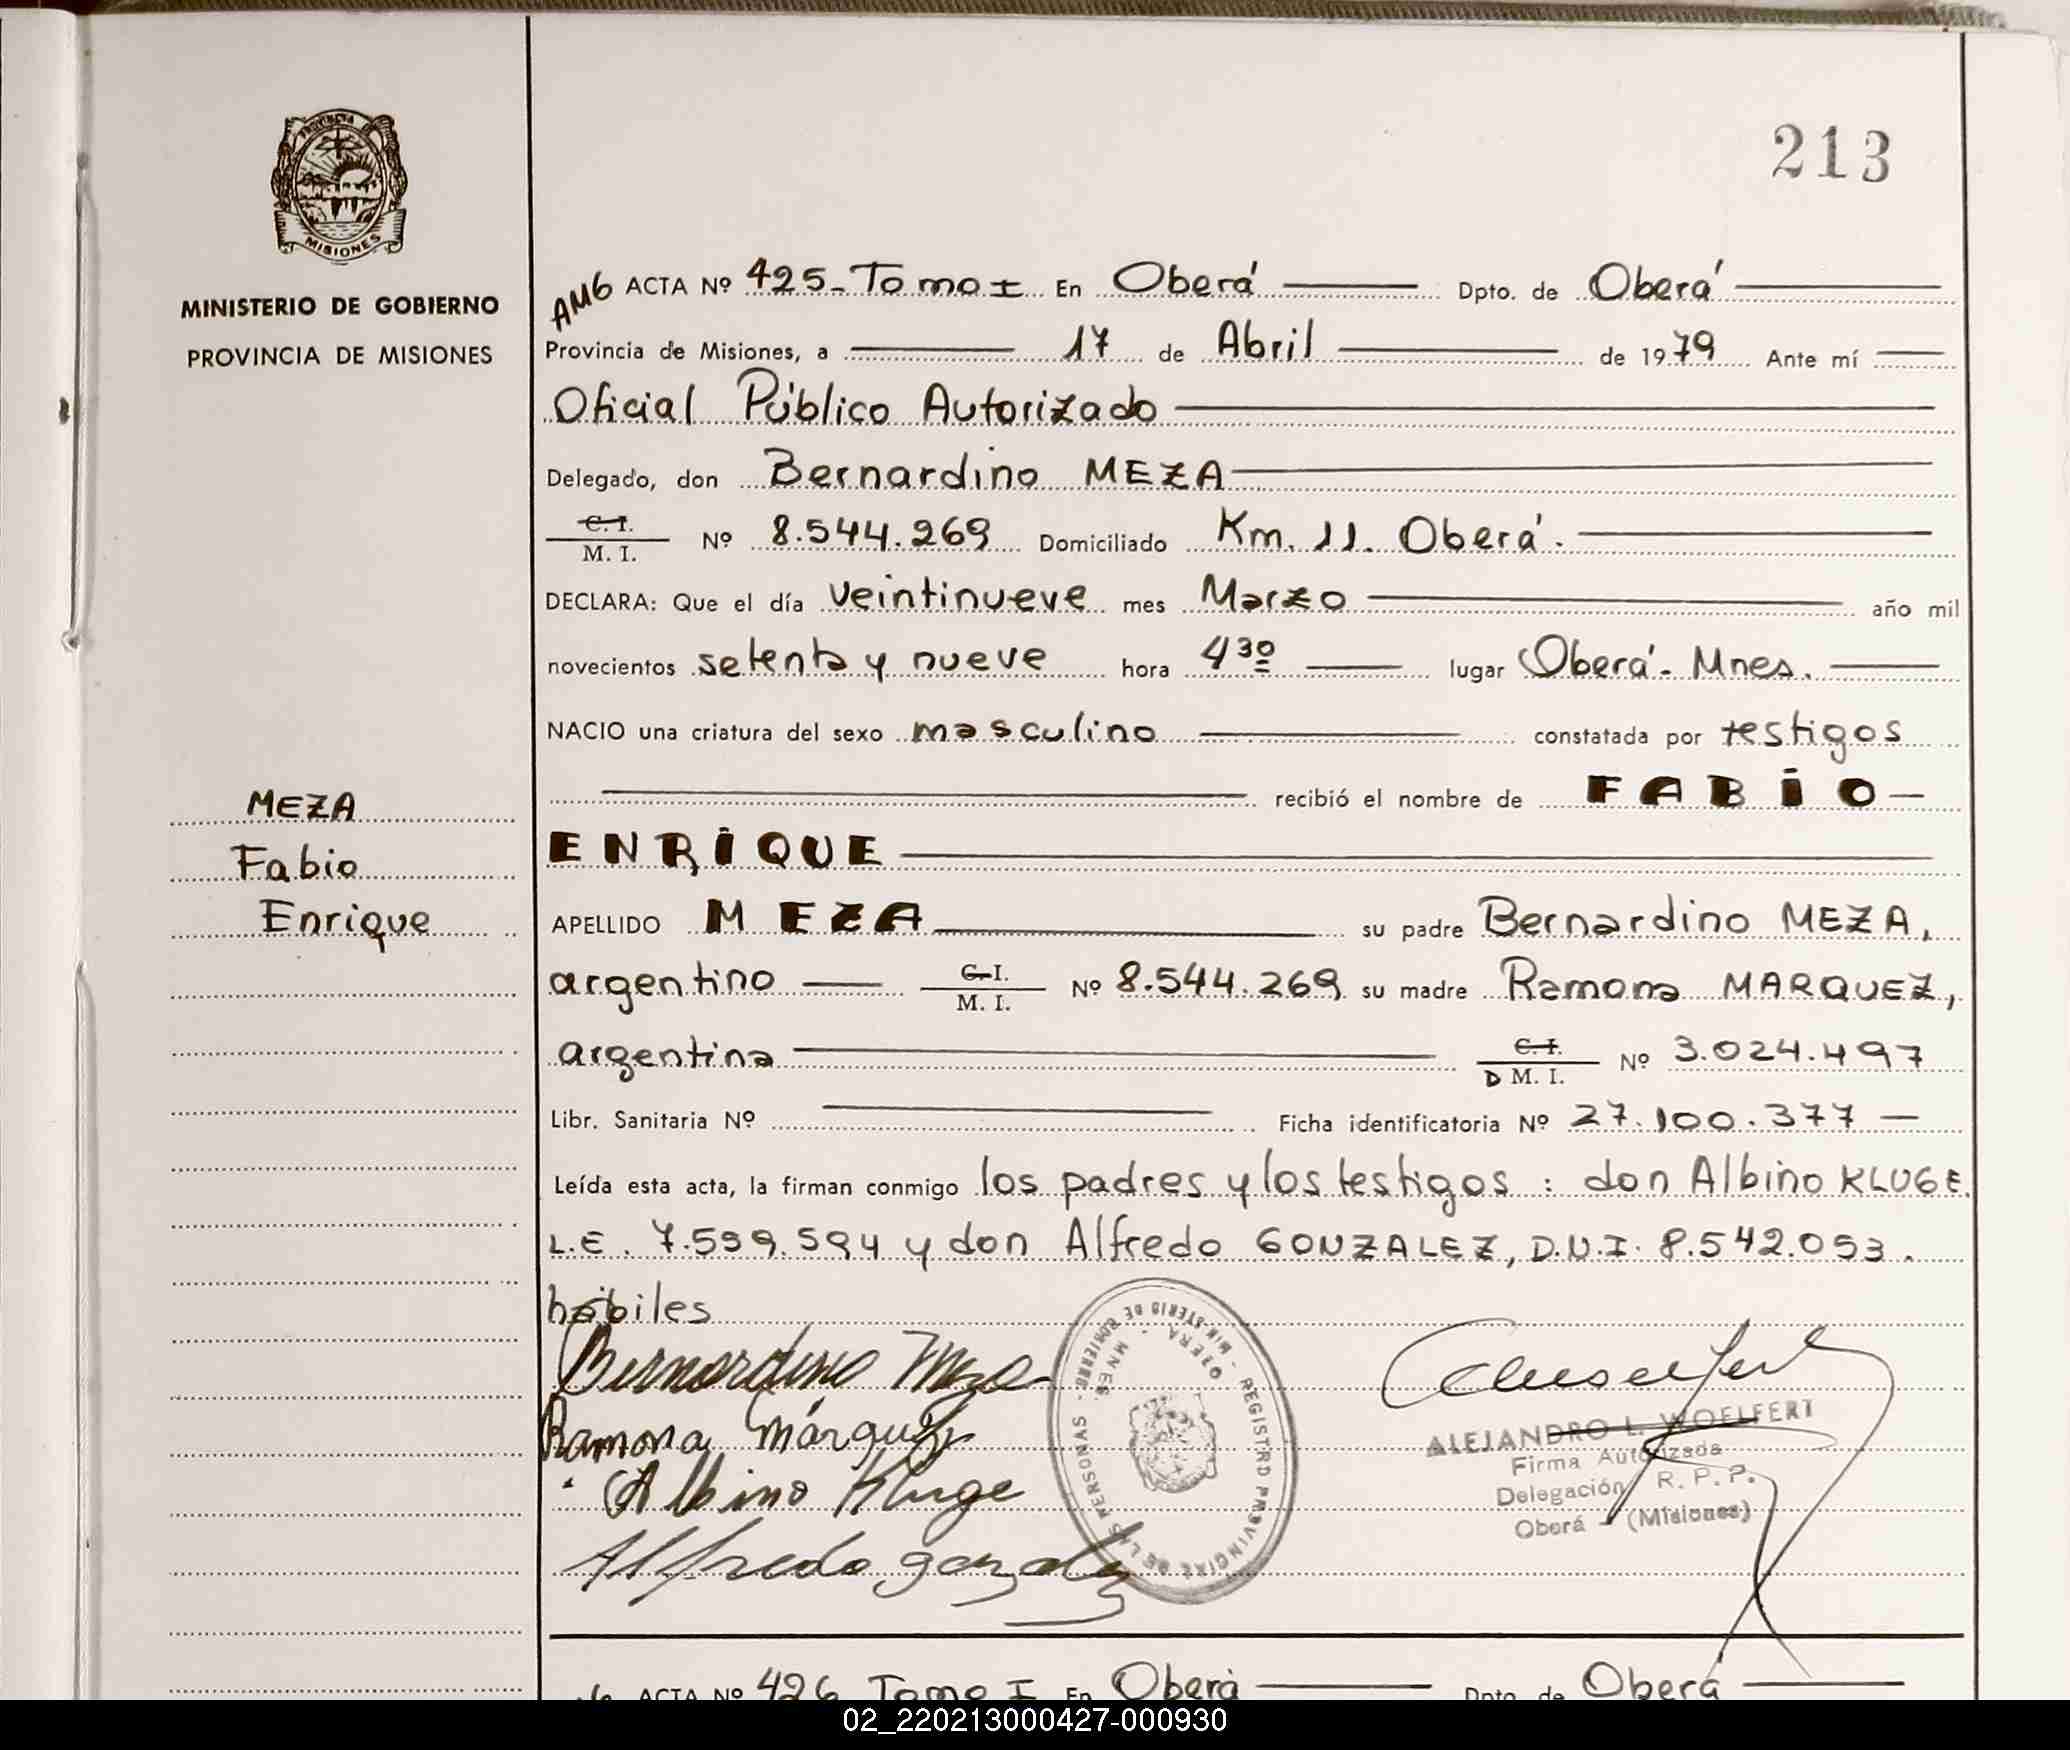 213
PROVINCIA DE
MISIONES
MINISTERIO DE GOBIERNO
PROVINCIA DE MISIONES
AMG ACTA Nº 425 - Tomo I En Oberá Dpto. de Oberá
Provincia de Misiones, a 17 de Abril de 1979 Ante mí
Oficial Público Autorizado
Delegado, don Bernardino MEZA
C. I.
M. I. Nº 8.544.269 Domiciliado Km. 11. Oberá.
DECLARA: Que el día veintinueve mes Marzo año mil
novecientos setenta y nueve hora 4 30 lugar Oberá - Mnes.
NACIO una criatura del sexo masculino constatada por testigos
recibió el nombre de FABIO
ENRIQUE
APELLIDO MEZA su padre Bernardino MEZA,
argentino C. I.
M. I. Nº 8.544.269 su madre Ramona MARQUEZ,
argentina C. I.
D M. I. Nº 3.024.497
Libr. Sanitaria Nº Ficha identificatoria Nº 27.100.377
Leída esta acta, la firman conmigo los padres y los testigos: don Albino KLUGE.
L.E. 7.599.594 y don Alfredo GONZALEZ, D.N.I. 8.542.053.
hábiles
MEZA
Fabio
Enrique
Bernardino Meza
Ramona Márquez
Albino Kluge
Alfredo gonzalez
MINISTERIO DE GOBIERNO - REGISTRO PROVINCIAL DE LAS PERSONAS
OBERA - MNES.
ALEJANDRO L. WOELFERT
Firma Autorizada
Delegación R. P. P.
Oberá - (Misiones)
ACTA Nº 426 Tomo I En Oberá Dpto de Oberá
02_220213000427-000930